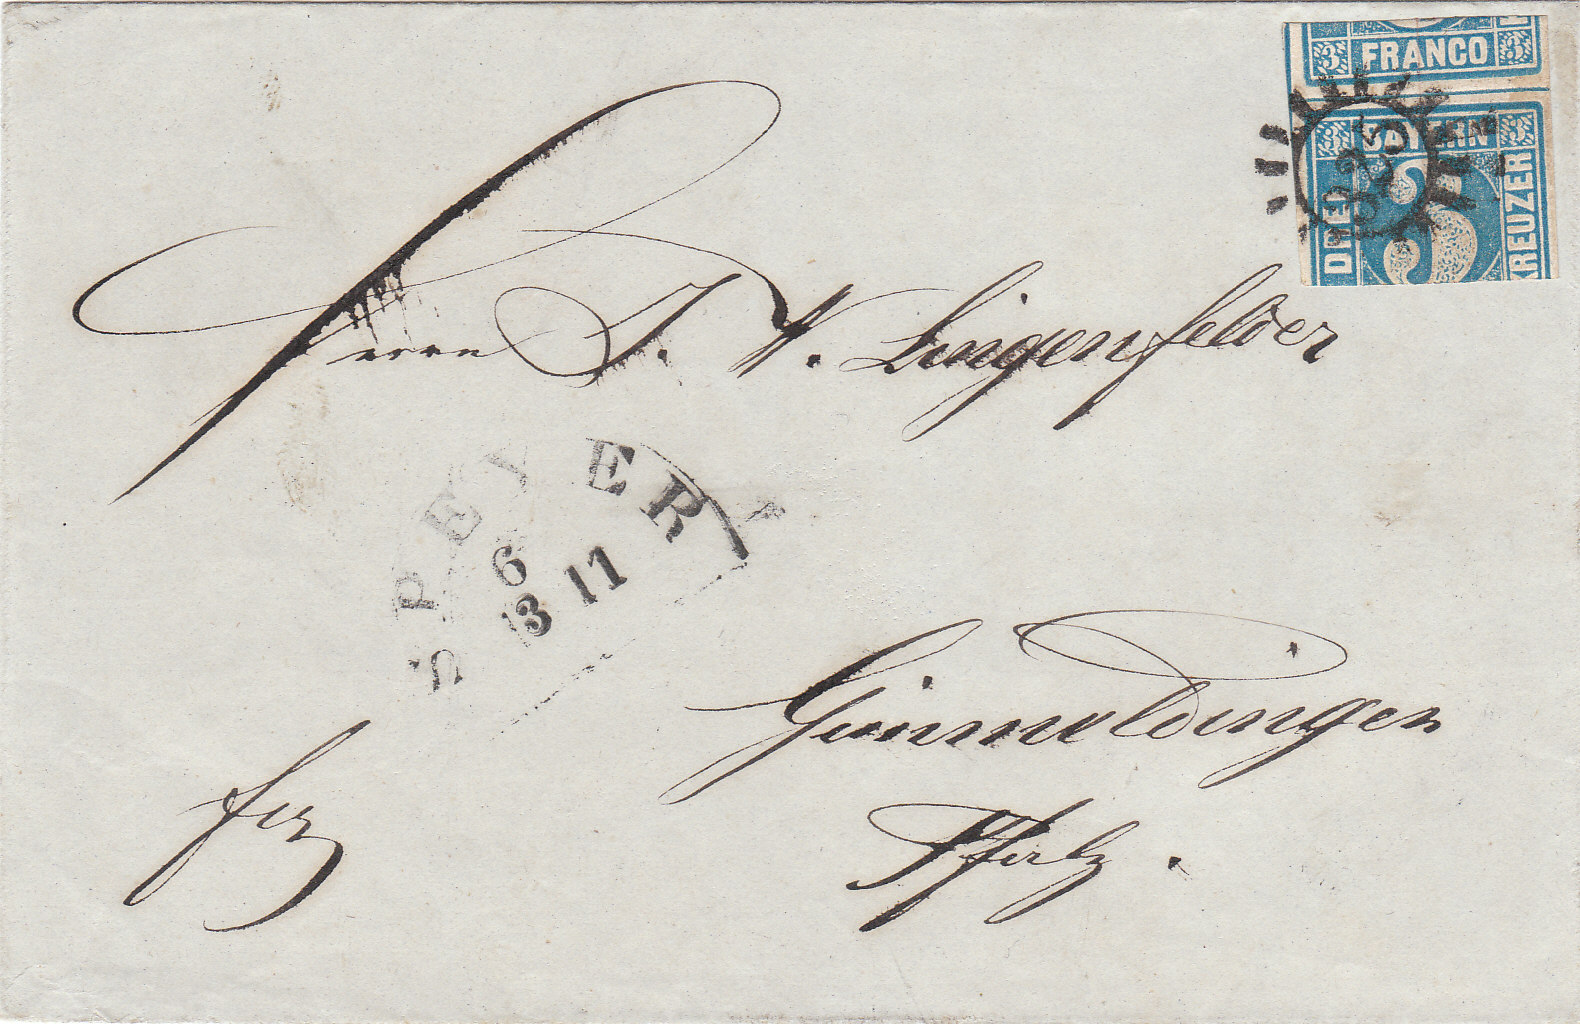 3 FRANCO 3
BAYERN 3
DREI
KREUZER
325
Herrn J. W. Lingenfelder
SPEYER
6
3 11
Gimmeldingen
Pfalz.